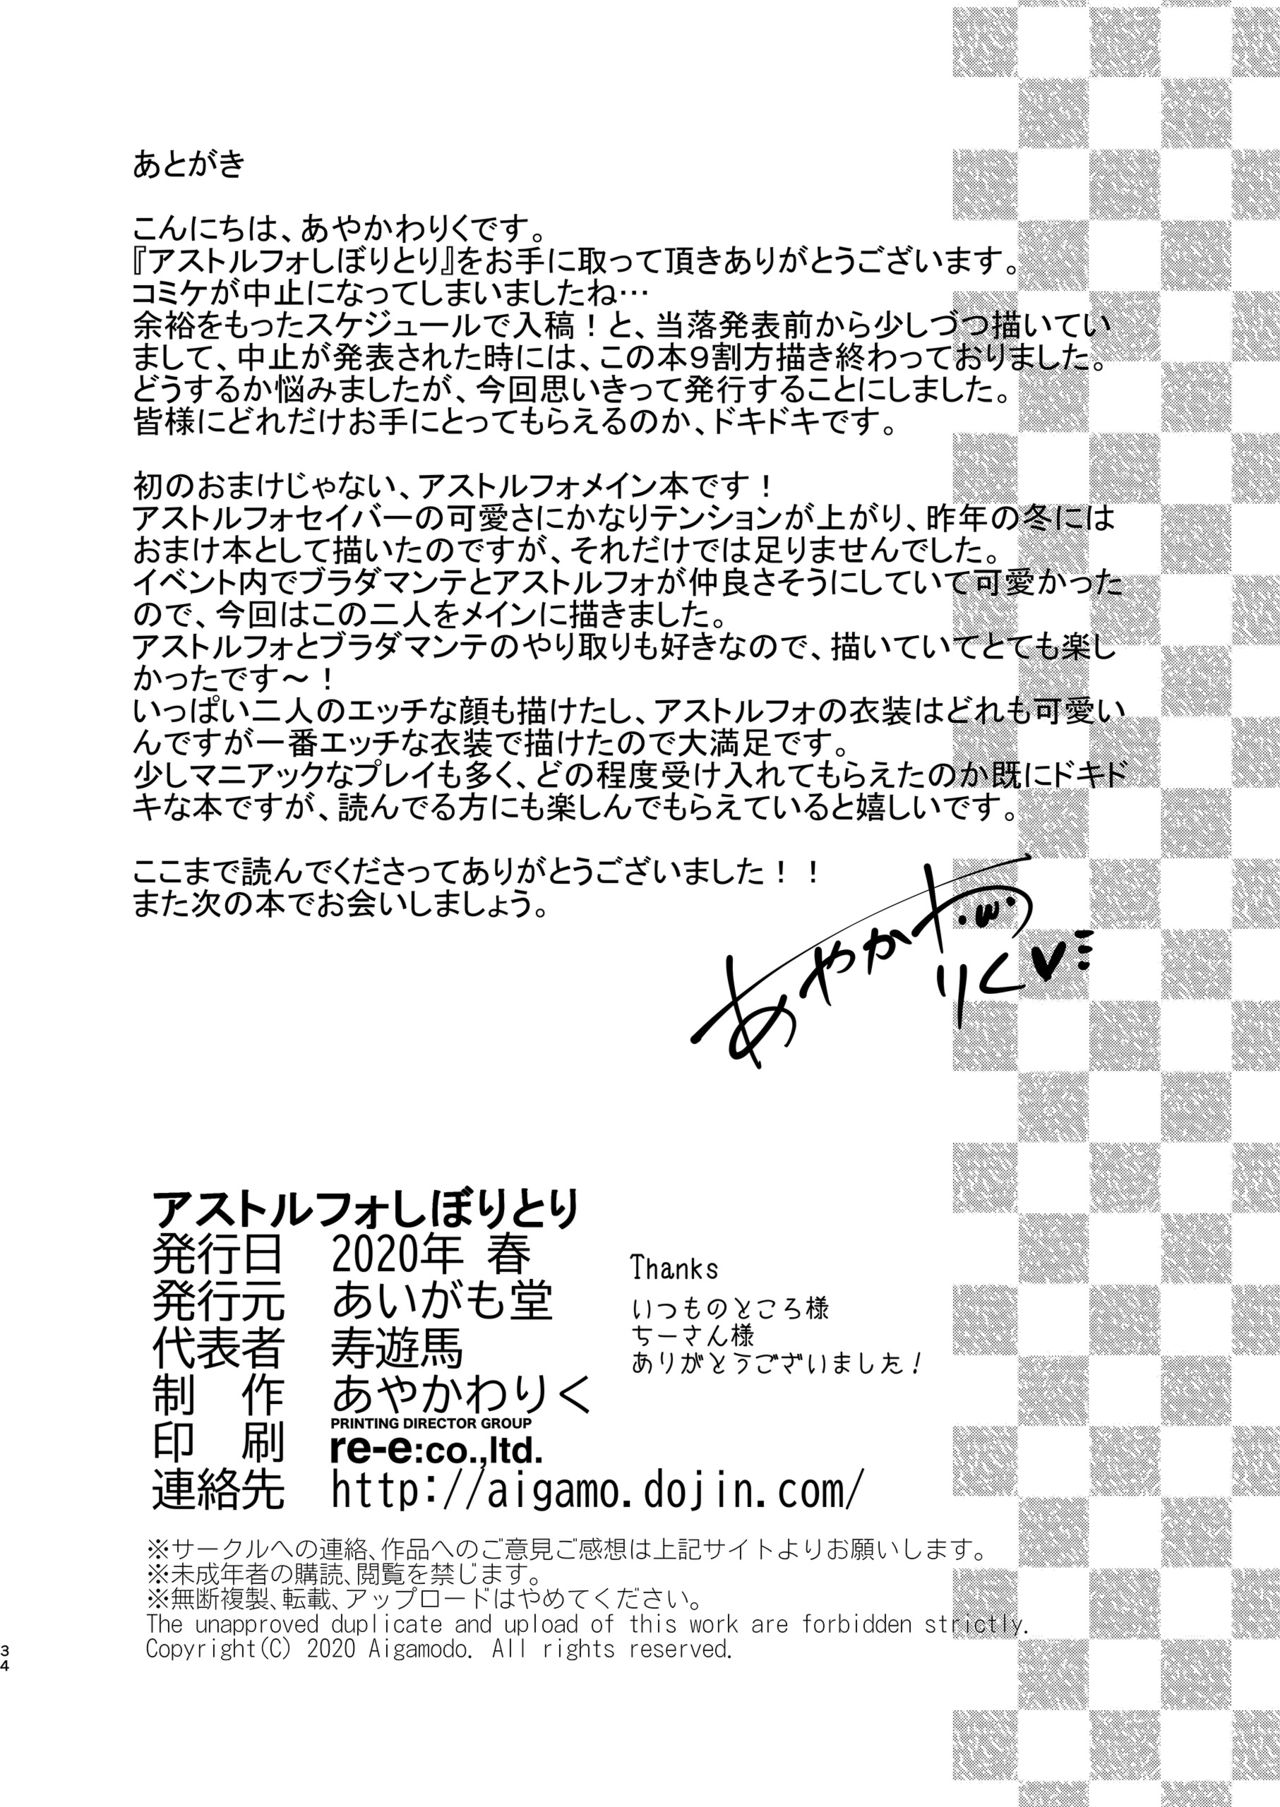 あとがき
こんにちは、あやかわりくです。
『アストルフォしぼりとり』をお手に取って頂きありがとうございます。
コミケが中止になってしまいましたね…
余裕をもったスケジュールで入稿！と、当落発表前から少しづつ描いてい
まして、中止が発表された時には、この本９割方描き終わっておりました。
どうするか悩みましたが、今回思いきって発行することにしました。
皆様にどれだけお手にとってもらえるのか、ドキドキです。
初のおまけじゃない、アストルフォメイン本です！
アストルフォセイバーの可愛さにかなりテンションが上がり、昨年の冬には
おまけ本として描いたのですが、それだけでは足りませんでした。
イベント内でブラダマンテとアストルフォが仲良さそうにしていて可愛かった
ので、今回はこの二人をメインに描きました。
アストルフォとブラダマンテのやり取りも好きなので、描いていてとても楽し
かったです～！
いっぱい二人のエッチな顔も描けたし、アストルフォの衣装はどれも可愛い
んですが一番エッチな衣装で描けたので大満足です。
少しマニアックなプレイも多く、どの程度受け入れてもらえたのか既にドキド
キな本ですが、読んでる方にも楽しんでもらえていると嬉しいです。
ここまで読んでくださってありがとうございました！！
また次の本でお会いしましょう。
あやかわ
りく
アストルフォしぼりとり
発行日　2020年 春
発行元　あいがも堂
代表者　寿遊馬
制　作　あやかわりく
印　刷　PRINTING DIRECTOR GROUP
re-e:co.,ltd.
連絡先　http://aigamo.dojin.com/
Thanks
いつものところ様
ちーさん様
ありがとうございました！
※サークルへの連絡、作品へのご意見ご感想は上記サイトよりお願いします。
※未成年者の購読、閲覧を禁じます。
※無断複製、転載、アップロードはやめてください。
The unapproved duplicate and upload of this work are forbidden strictly.
Copyright(C) 2020 Aigamodo. All rights reserved.
34